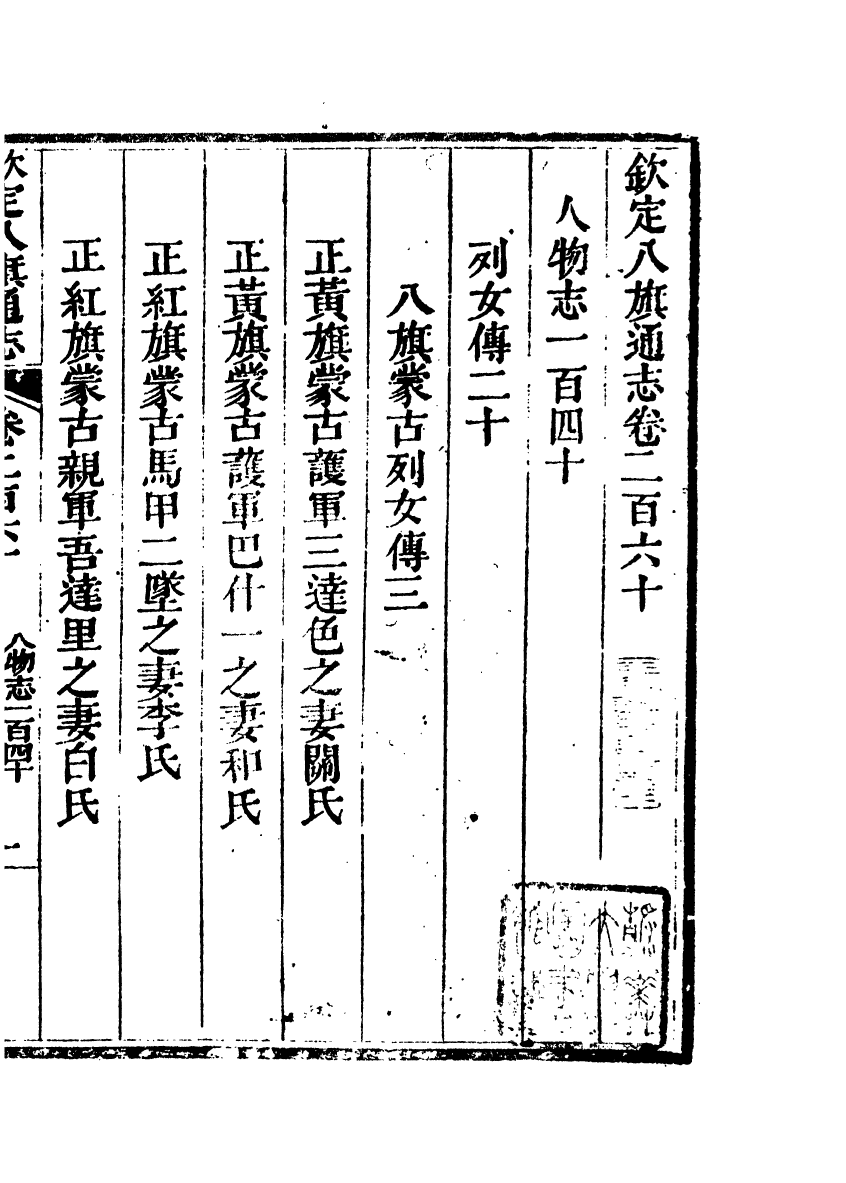 欽定八旗通志卷二百六十
人物志一百四十
列女傳二十
八旗蒙古列女傳三
正黃旗蒙古護軍三達色之妻關氏
正黃旗蒙古護軍巴什一之妻和氏
正紅旗蒙古馬甲二墜之妻李氏
正紅旗蒙古親軍吾達里之妻白氏
欽定八旗通志 卷二百六十 人物志一百四十 一